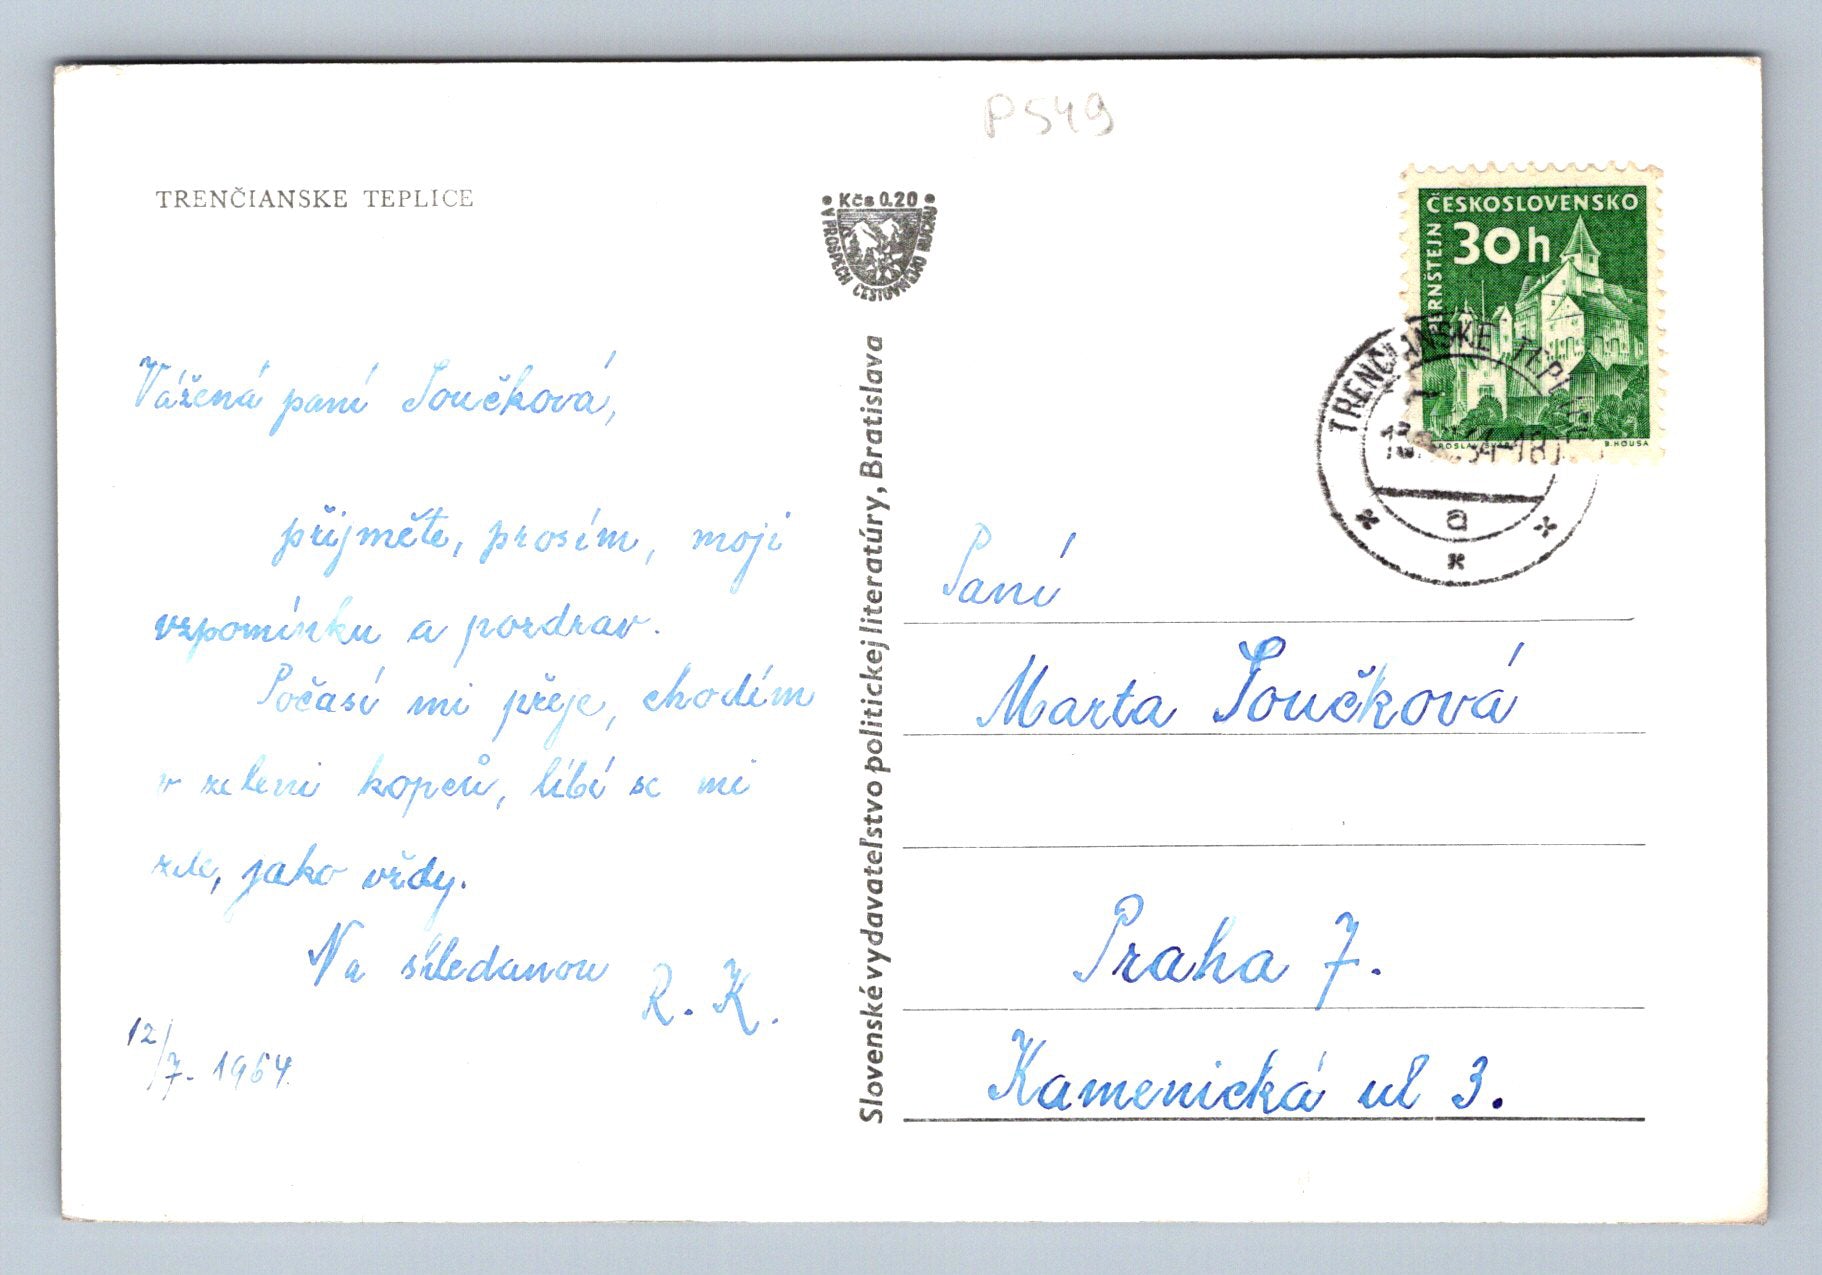 P549
TRENČIANSKE TEPLICE
Kčs 0.20
V PROSPECH CESTOVNÉHO RUCHU
ČESKOSLOVENSKO
30h
PERNŠTEJN
B. HOUSA
TRENČIANSKE TEPLICE
a
Vážená paní Součková,
přijměte, prosím, moji
vzpomínku a pozdrav.
Počasí mi přeje, chodím
v zeleni kopců, líbí se mi
zde, jako vždy.
Na shledanou
R. K.
12/7. 1964
Slovenské vydavateľstvo politickej literatúry, Bratislava
Paní
Marta Součková
Praha 7.
Kamenická ul 3.